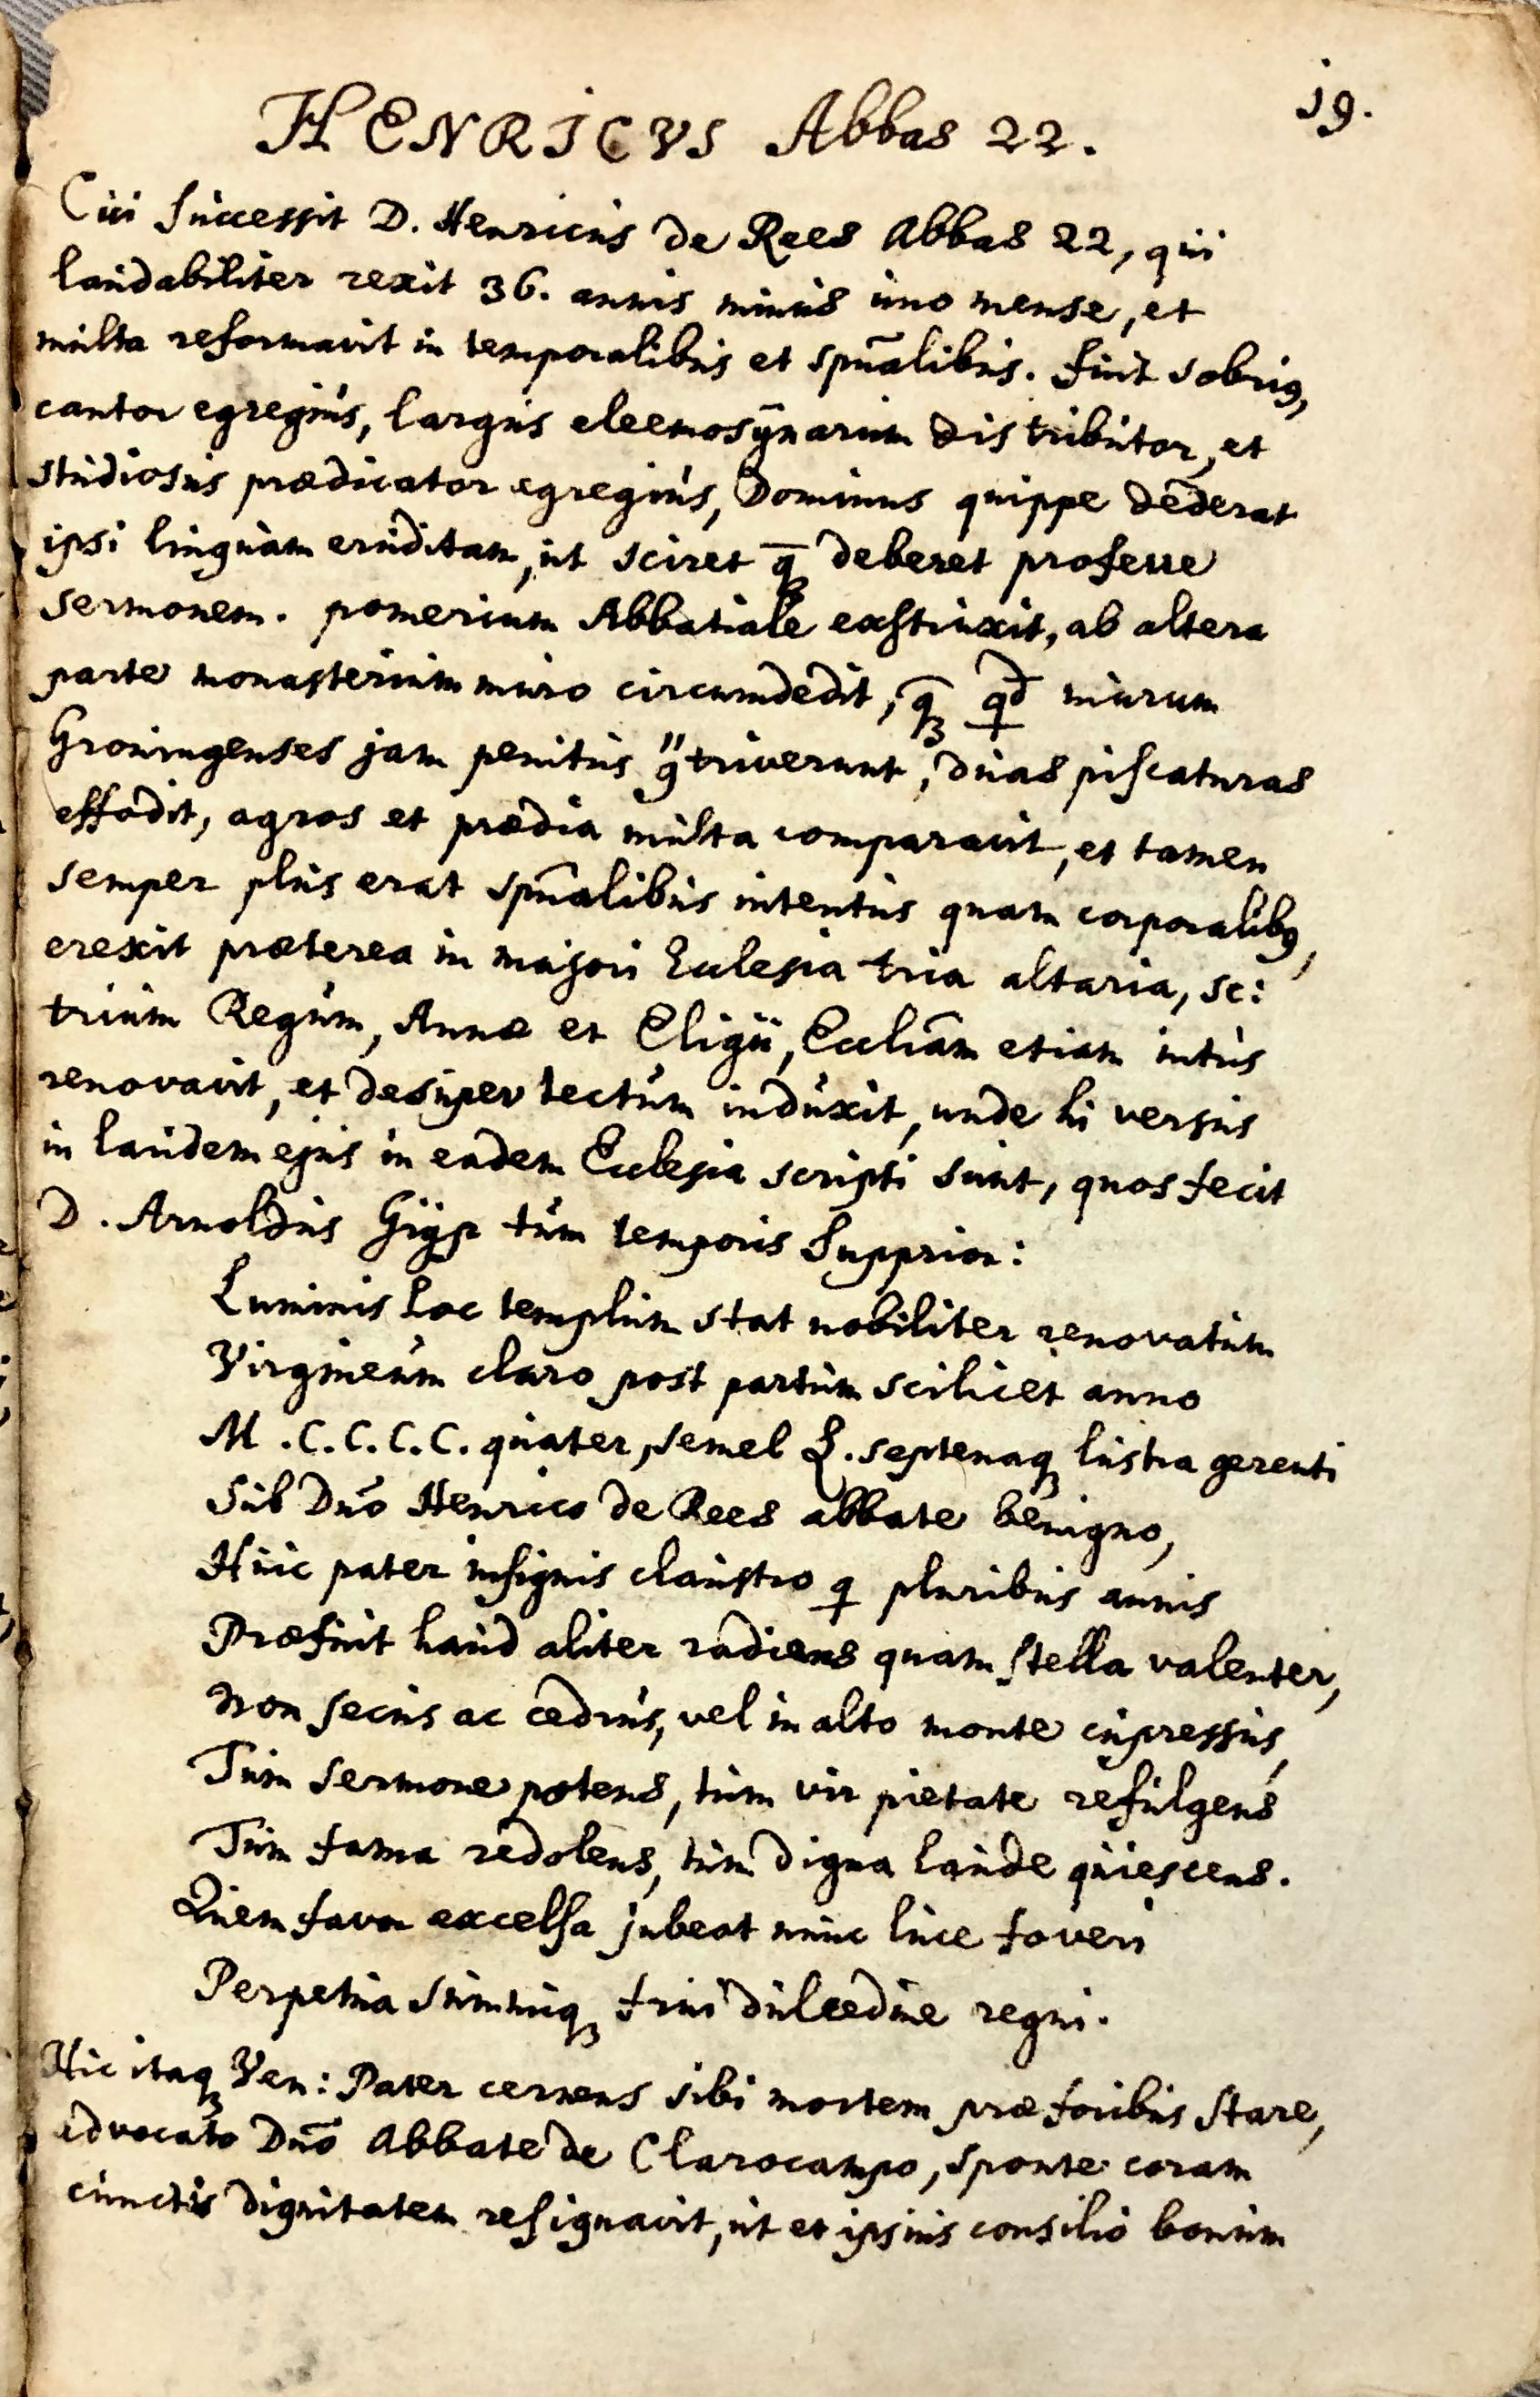 19.
HENRICVS Abbas 22.
Cui successit D. Henricus de Rees Abbas 22, qui
laudabiliter rexit 36. annis minus uno mense, et
multa reformavit in temporalibus et spũalibus. fuit sobriꝰ,
cantor egregius, largus eleemosÿnarum distributor, et
studiosus prædicator egregius, Dominus quippe dederat
ipsi linguam eruditam, ut sciret q̄ deberet proferre
sermonem. pomerium Abbatiale exstruxit, ab altera
parte monasterium muro circumdedit, q̄ꝫ qd̄ murum
Groningenses jam penitus ꝯtriverunt, duas piscaturas
effodit, agros et prædia multa comparavit, et tamen
semper plus erat spũalibus intentus quam corporalibꝰ,
erexit præterea in majori Ecclesia tria altaria, sc:
trium Regum, Annæ et Eligii, Eccliãm etiam intus
renovavit, et desuper tectum induxit, unde hi versus
in laudem ejus in eadem Ecclesia scripti sunt, quos fecit
D. Arnoldus Gÿp tum temporis Supprior:
Luminis hoc templum stat nobiliter renovatum
Virgineum claro post partum scilicet anno
M.C.C.C.C. quater, semel L. septenaqꝫ lustra gerenti
Sub Dnõ Henrico de Rees abbate benigno,
Huic pater insignis claustro q pluribus annis
Præfuit haud aliter radiens quam stella valenter,
Non secus ac cedrus, vel in alto monte cupressus,
Tum sermone potens, tum vir pietate refulgens
Tum fama redolens, tum digna laude quiescens.
Quem favor excelsa jubeat nunc luce foveri
Perpetua summiqꝫ frui dulcedine regni.
Hic itaqꝫ Ven: Pater cernens sibi mortem præ foribus stare,
advocato Dnõ Abbate de Clarocampo, sponte coram
cunctis dignitatem resignavit, ut et ipsius consilio bonum